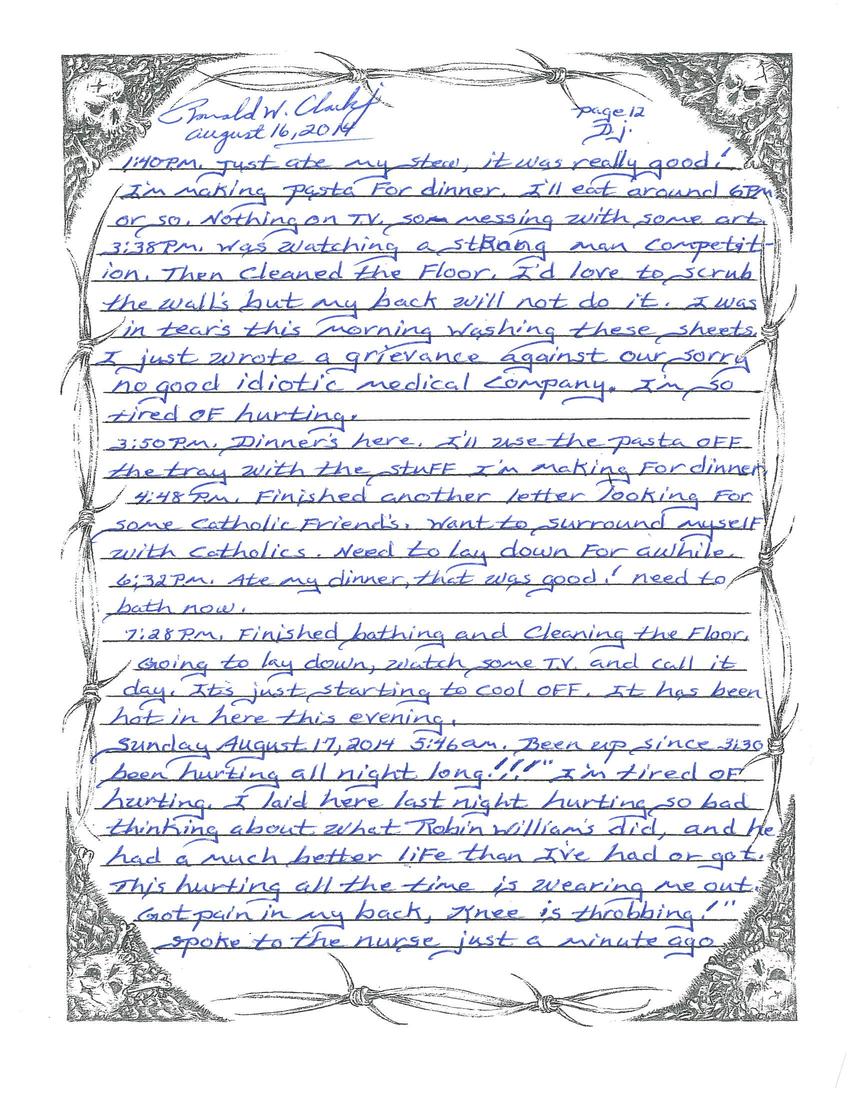 Ronald W. Clark jr
page 12
august 16, 2014
D.j.
1:40 P.M. Just ate my stew, it was really good!
I'm making Pasta For dinner. I'll eat around 6Pm.
or so. Nothing on T.V. so messing with some art.
3:38 P.M. Was watching a strong man Competit-
ion. Then Cleaned the Floor. I'd love to scrub
the wall's but my back will not do it. I was
in tear's this morning washing these sheets.
I just wrote a grievance against our sorry
no good idiotic medical Company. I'm so
tired OF hurting.
3:50 P.M. Dinner's here. I'll use the pasta OFF
the tray with the stuFF I'm making For dinner.
4:48 P.M. Finished another letter looking For
some Catholic Friend's. Want to surround myselF
with Catholics. Need to lay down For awhile.
6:32 P.M. Ate my dinner, that was good! need to
bath now.
7:28 P.M. Finished bathing and Cleaning the Floor.
Going to lay down, watch some T.V. and call it
day. It's just starting to cool OFF. It has been
hot in here this evening.
Sunday August 17, 2014 5:46 am. Been up since 3:30
been hurting all night long!!!!" I'm tired OF
hurting. I laid here last night hurting so bad
thinking about what Robin William's did, and he
had a much better liFe than I've had or got.
This hurting all the time is wearing me out.
Got pain in my back, Knee is throbbing!"
spoke to the nurse just a minute ago